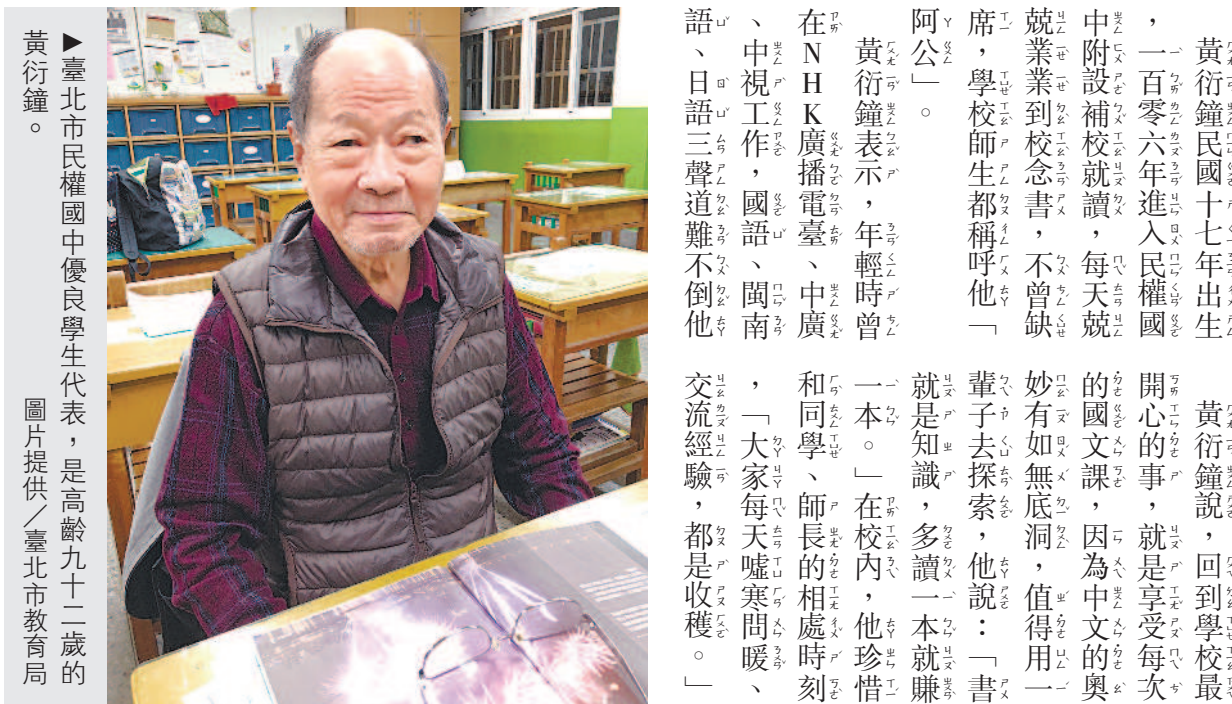 黃衍鐘民國十七年出生
，一百零六年進入民權國
中附設補校就讀，每天兢
兢業業到校念書，不曾缺
席，學校師生都稱呼他「
阿公」。
黃衍鐘表示，年輕時曾
在NHK廣播電臺、中廣
、中視工作，國語、閩南
語、日語三聲道難不倒他
黃衍鐘說，回到學校最
開心的事，就是享受每次
的國文課，因為中文的奧
妙有如無底洞，值得用一
輩子去探索，他說：「書
就是知識，多讀一本就賺
一本。」在校內，他珍惜
和同學、師長的相處時刻
，「大家每天噓寒問暖、
交流經驗，都是收穫。」
▶臺北市民權國中優良學生代表，是高齡九十二歲的
黃衍鐘。
圖片提供／臺北市教育局